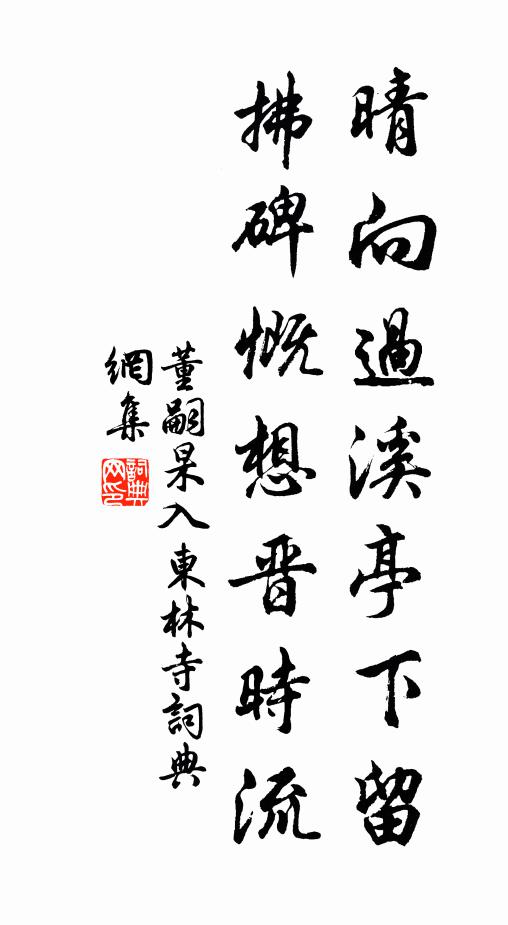 晴向過溪亭下留
拂碑慨想晉時流
董嗣杲入東林寺詞典
網集
詞典網印